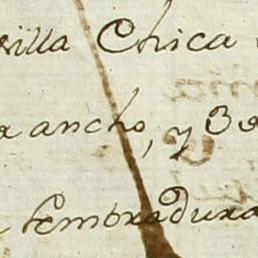 villa Chica
ancho, y 3
sembradura